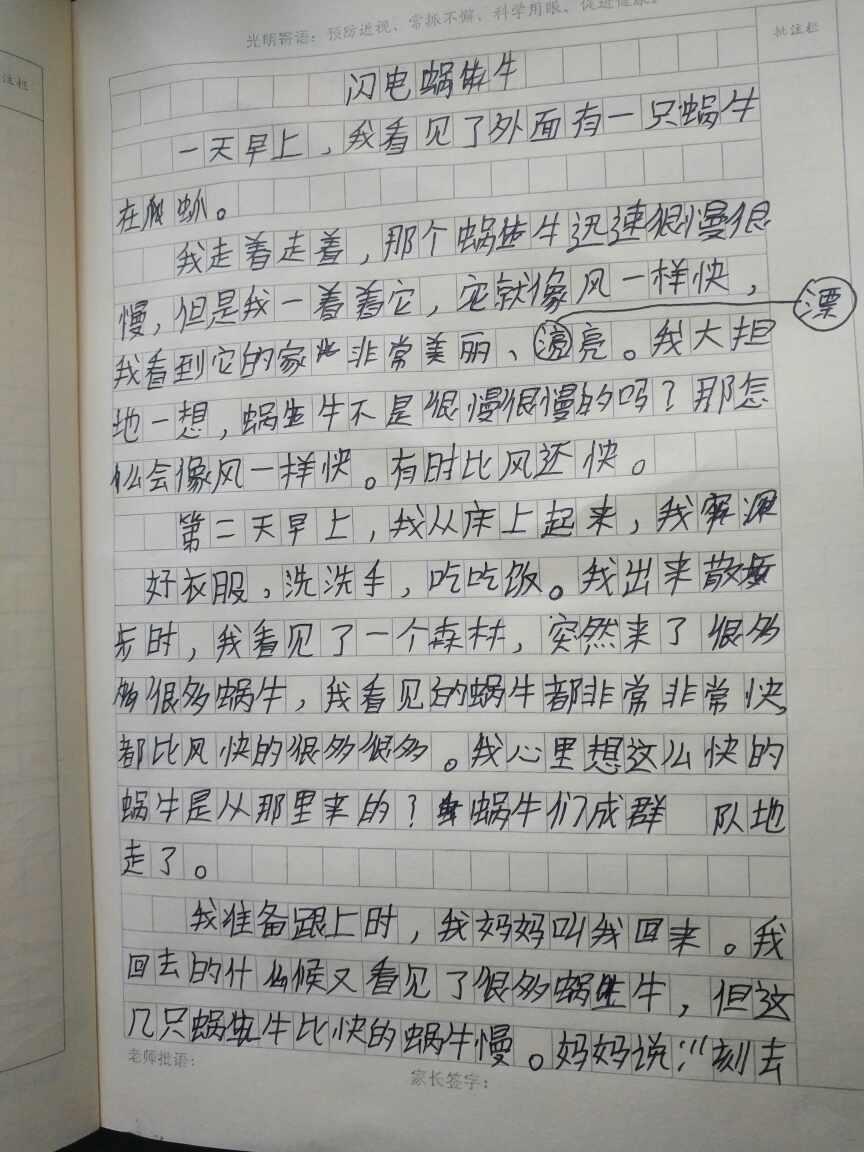 光明寄语：预防近视、常抓不懈、科学用眼、促进健康。
注栏
批注栏
闪电蜗牛
一天早上，我看见了外面有一只蜗牛
在爬。
我走着走着，那个蜗牛迅速很慢很
慢，但是我一着着它，它就像风一样快，
漂
我看到它的家非常美丽、漂亮。我大担
地一想，蜗牛不是很慢很慢的吗？那怎
么会像风一样快。有时比风还快。
第二天早上，我从床上起来，我穿
好衣服，洗洗手，吃吃饭。我出来散
步时，我看见了一个森林，突然来了很多
很多蜗牛，我看见的蜗牛都非常非常快，
都比风快的很多很多。我心里想这么快的
蜗牛是从那里来的？蜗牛们成群 队地
走了。
我准备跟上时，我妈妈叫我回来。我
回去的什么候又看见了很多蜗牛，但这
几只蜗牛比快的蜗牛慢。妈妈说：刻去
老师批语：
家长签字：